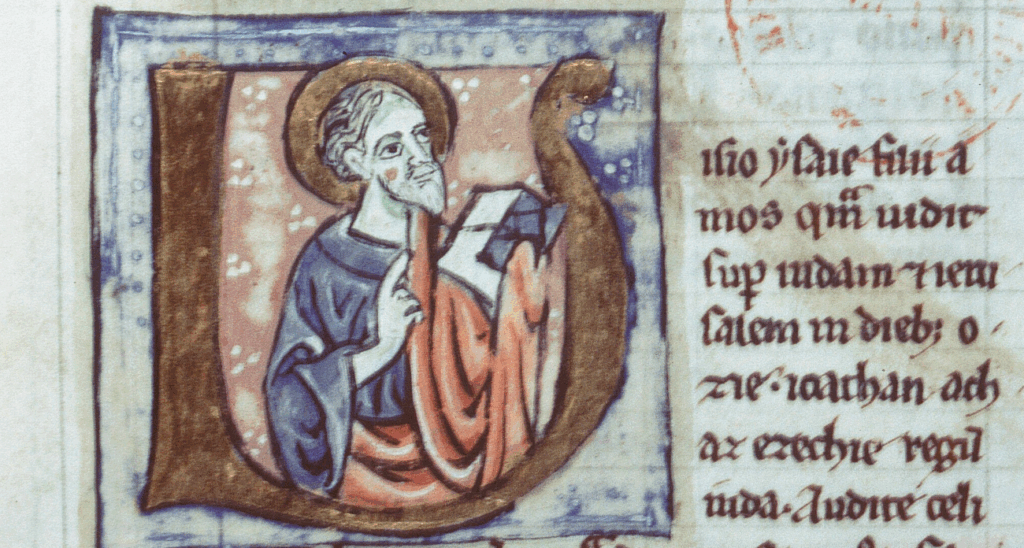 V
isio ẏsaie filii a
mos qᷓm uidit
suꝑ iudam ⁊ ieru
salem in dieb; o
zie · ioathan ach
az ezechie regū
iuda · Audite celi